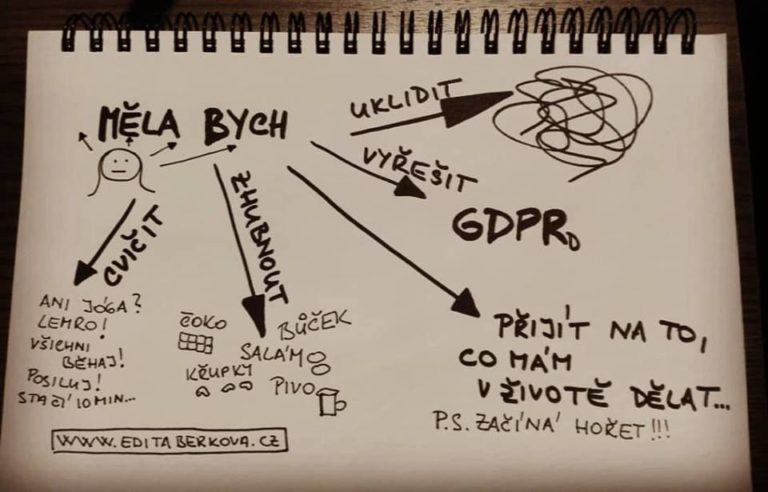 MĚLA BYCH
UKLIDIT
VYŘEŠIT
GDPR
CVIČIT
ANI JÓGA?
LEMRO!
VŠICHNI
BĚHAJ!
POSILUJ!
STAČÍ 10 MIN...
ZHUBNOUT
ČOKO
BŮČEK
SALÁM
KŘUPKY
PIVO
PŘIJÍT NA TO,
CO MÁM
V ŽIVOTĚ DĚLAT...
P.S. ZAČÍNÁ HOŘET!!!
WWW.EDITABERKOVA.CZ